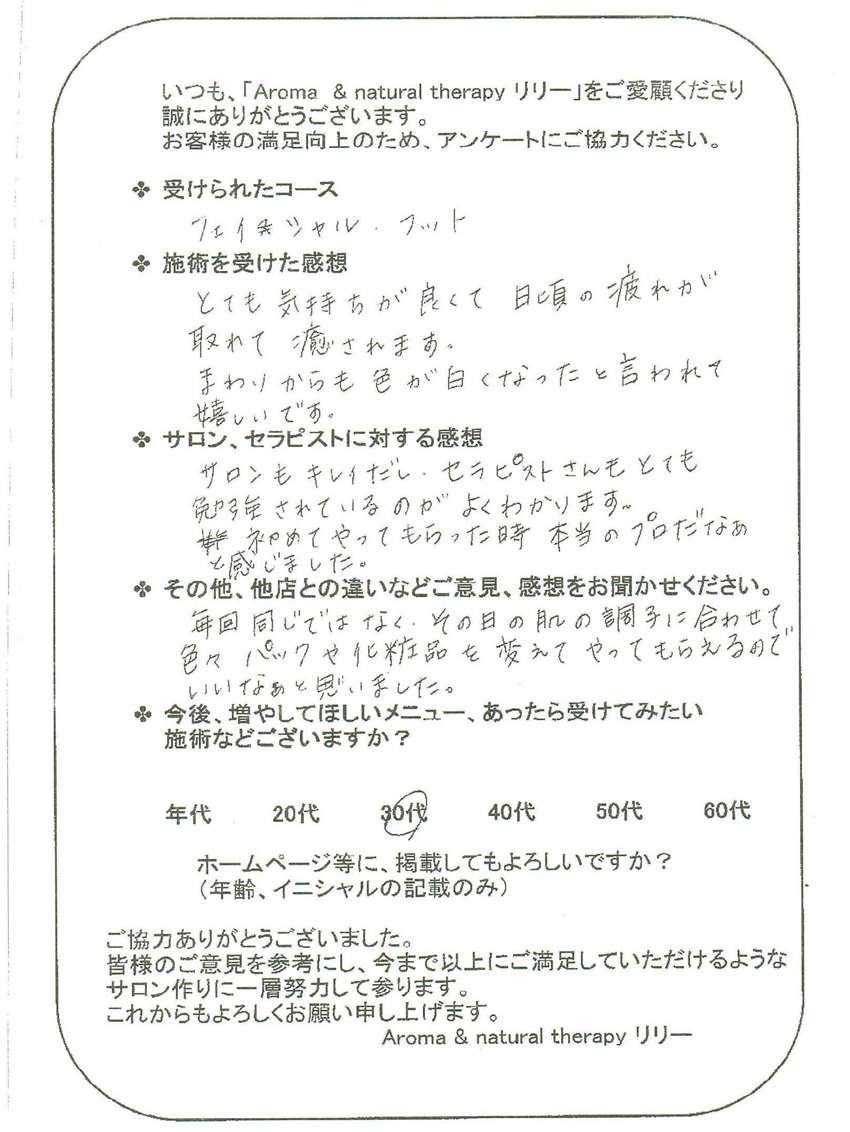 いつも、「Aroma & natural therapy リリー」をご愛顧くださり
誠にありがとうございます。
お客様の満足向上のため、アンケートにご協力ください。
❖ 受けられたコース
フェイシャル．フット
❖ 施術を受けた感想
とても気持ちが良くて 日頃の疲れが
取れて 癒されます。
まわりからも色が白くなったと言われて
嬉しいです。
❖ サロン、セラピストに対する感想
サロンもキレイだし．セラピストさんもとても
勉強されているのがよくわかります。
初めてやってもらった時 本当のプロだなぁ
と感じました。
❖ その他、他店との違いなどご意見、感想をお聞かせください。
毎回同じではなく．その日の肌の調子に合わせて
色々パックや化粧品を変えてやってもらえるので
いいなぁと思いました。
❖ 今後、増やしてほしいメニュー、あったら受けてみたい
施術などございますか？
年代 20代 30代 40代 50代 60代
ホームページ等に、掲載してもよろしいですか？
（年齢、イニシャルの記載のみ）
ご協力ありがとうございました。
皆様のご意見を参考にし、今まで以上にご満足していただけるような
サロン作りに一層努力して参ります。
これからもよろしくお願い申し上げます。
Aroma & natural therapy リリー